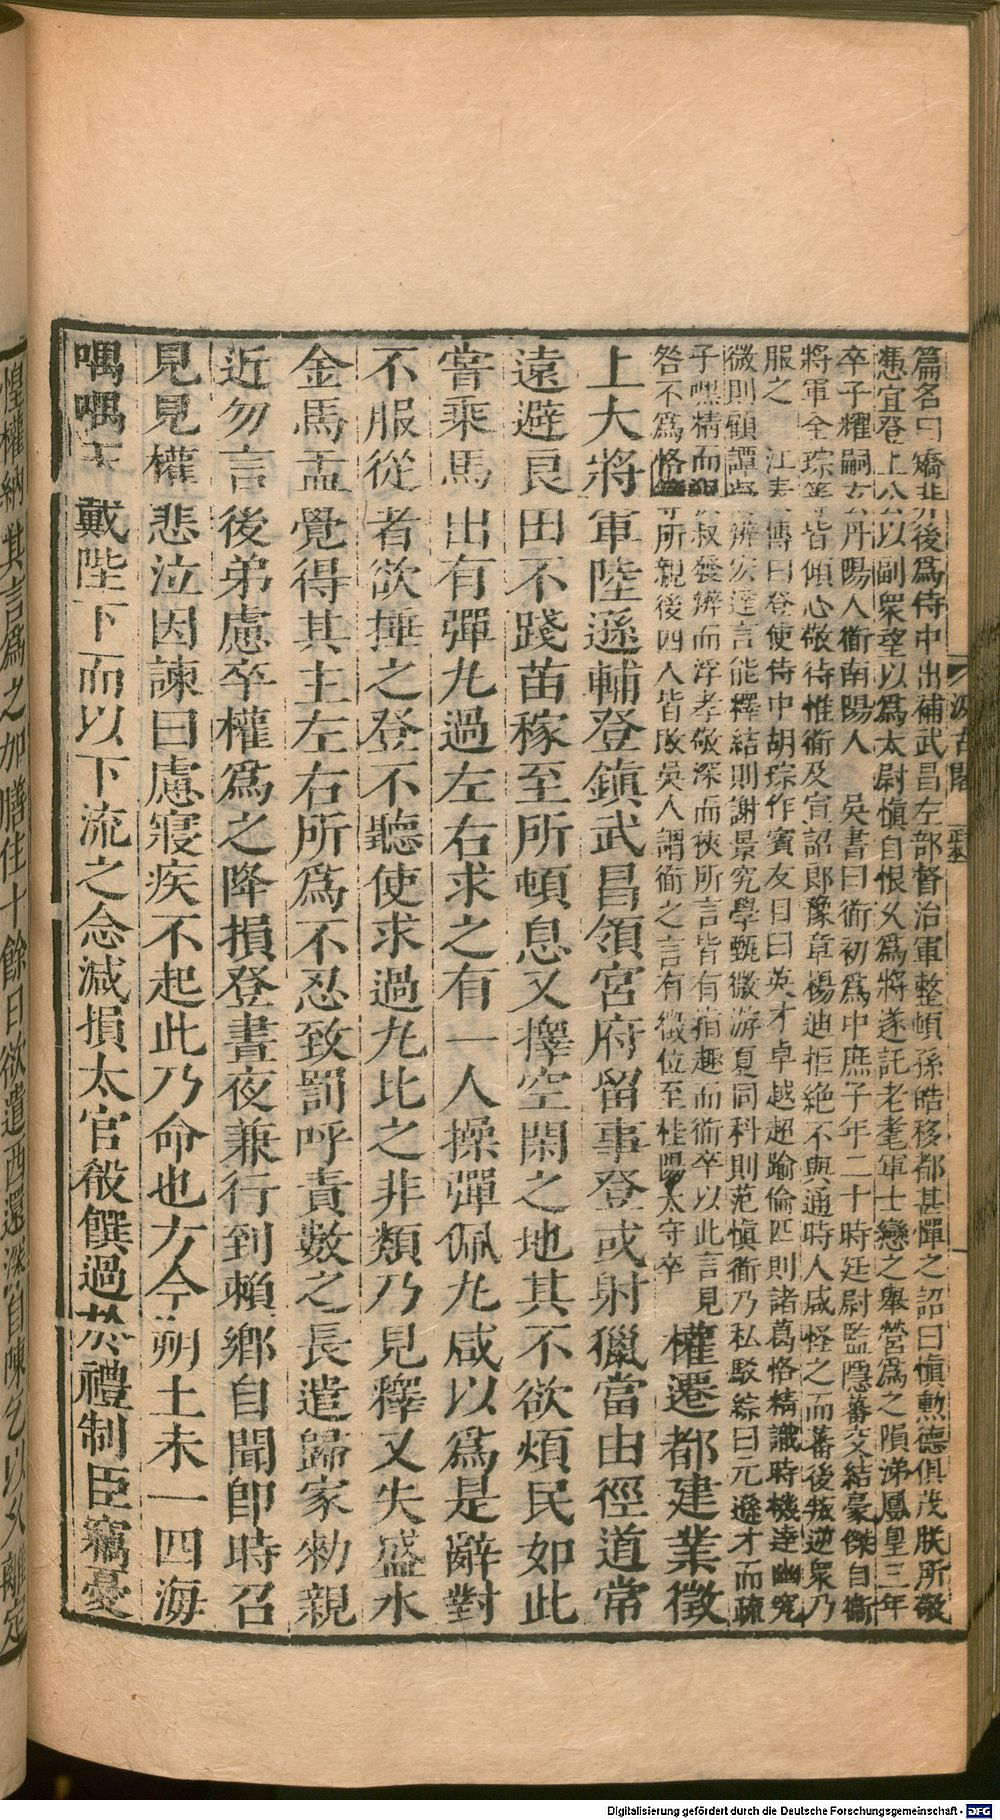 篇名曰矯非後爲侍中出補武昌左部督治軍整頓孫皓移都甚憚之詔曰愼勲德俱茂朕所敬
憑宜登上公以副衆望以爲太尉愼自恨久爲將遂託老耄軍士戀之舉營爲之隕涕鳳皇三年
卒子耀嗣 丹陽人衜南陽人 吳書曰衜初爲中庶子年二十時廷尉監隱蕃交結豪傑自衞
將軍全琮等皆傾心敬待惟衜及宣詔郎豫章楊迪拒絶不與通時人咸怪之而蕃後叛逆衆乃
服之 江表傳曰登使侍中胡琮作賓友目曰英才卓越超踰倫匹則諸葛恪精識時機達幽究
微則顧譚 辨宏達言能釋結則謝景究學甄微游夏同科則范愼衜乃私駁綜曰元遜才而疏
子嘿精而 叔發辨而浮孝敬深而狹所言皆有指趣而衜卒以此言見
咎不爲恪等所親後四人皆敗吳人謂衜之言有徵位至桂陽太守卒 權遷都建業徵
上大將軍陸遜輔登鎭武昌領宮府留事登或射獵當由徑道常
遠避良田不踐苗稼至所頓息又擇空閑之地其不欲煩民如此
甞乘馬出有彈丸過左右求之有一人操彈佩丸咸以爲是辭對
不服從者欲捶之登不聽使求過丸比之非類乃見釋又失盛水
金馬盂覺得其主左右所爲不忍致罰呼責數之長遣歸家勑親
近勿言後弟慮卒權爲之降損登晝夜兼行到賴鄉自聞卽時召
見見權悲泣因諫曰慮寢疾不起此乃命也方今朔土未一四海
喁喁天戴陛下而以下流之念減損太官殽饌過於禮制臣竊憂
汲古閣
惶權納其言爲之加膳住十餘日欲遣西還深自陳乞以久離定
Digitalisierung gefördert durch die Deutsche Forschungsgemeinschaft - DFG